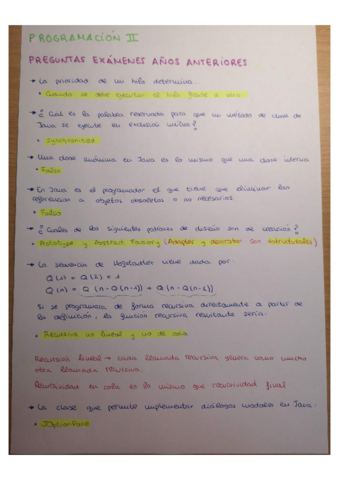 PROGRAMACIÓN II
PREGUNTAS EXÁMENES AÑOS ANTERIORES
→ La prioridad de un hilo determina...
• Cuando se debe ejecutar el hilo frente a otro
→ ¿Cuál es la palabra reservada para que un método de clase de
Java se ejecute en exclusión mutua?
• Synchronized
→ Una clase anónima en Java es lo mismo que una clase interna
• Falso
→ En Java es el programador el que tiene que eliminar las
referencias a objetos obsoletos o no necesarios.
• Falso
→ ¿Cuáles de los siguientes patrones de diseño son de creación?
• Prototype y Abstract Factory (Adapter y decorator son estructurales)
→ La secuencia de Hofstadter viene dada por:
Q(1) = Q(2) = 1
Q(n) = Q(n-Q(n-1)) + Q(n-Q(n-2))
Si se programa de forma recursiva directamente a partir de
la definición, la función recursiva resultante sería:
• Recursiva no lineal y no de cola
Recursiva lineal → cada llamada recursiva genera como mucho
otra llamada recursiva.
Recursividad en cola es lo mismo que recursividad final
→ La clase que permite implementar diálogos modales en Java:
• JOptionPane